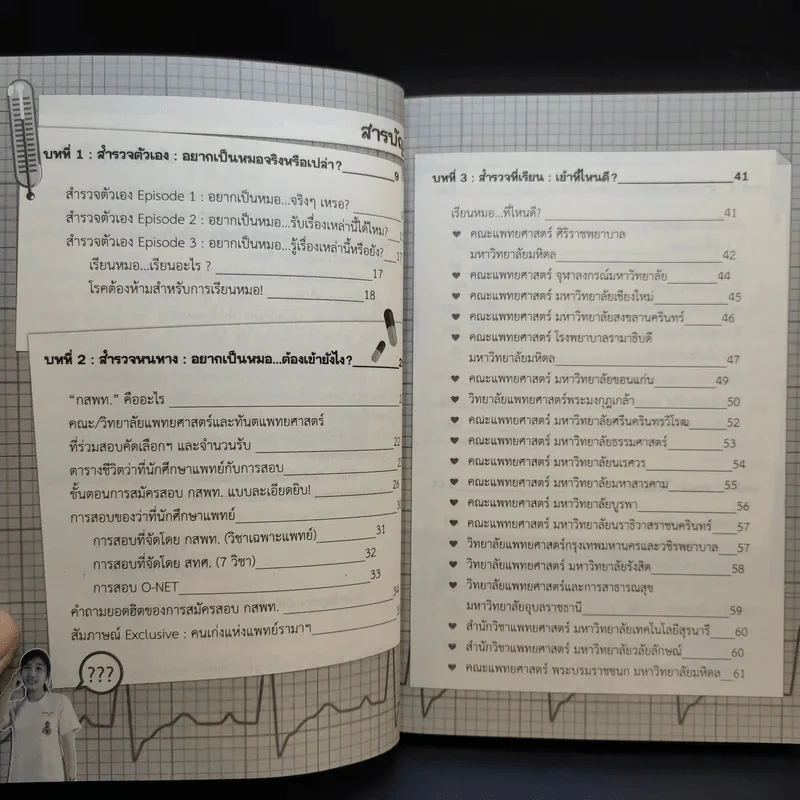 สารบัญ
บทที่ 1 : สำรวจตัวเอง : อยากเป็นหมอจริงหรือเปล่า?_____9
สำรวจตัวเอง Episode 1 : อยากเป็นหมอ...จริงๆ เหรอ?
สำรวจตัวเอง Episode 2 : อยากเป็นหมอ...รับเรื่องเหล่านี้ได้ไหม?
สำรวจตัวเอง Episode 3 : อยากเป็นหมอ...รู้เรื่องเหล่านี้หรือยัง?__17
เรียนหมอ...เรียนอะไร ?_____17
โรคต้องห้ามสำหรับการเรียนหมอ!_____18
บทที่ 2 : สำรวจหนทาง : อยากเป็นหมอ...ต้องเข้ายังไง?_____
"กสพท." คืออะไร_____
คณะ/วิทยาลัยแพทยศาสตร์และทันตแพทยศาสตร์
ที่ร่วมสอบคัดเลือกฯ และจำนวนรับ_____22
ตารางชีวิตว่าที่นักศึกษาแพทย์กับการสอบ_____
ขั้นตอนการสมัครสอบ กสพท. แบบละเอียดยิบ!_____26
การสอบของว่าที่นักศึกษาแพทย์_____30
การสอบที่จัดโดย กสพท. (วิชาเฉพาะแพทย์)_____31
การสอบที่จัดโดย สทศ. (7 วิชา)_____32
การสอบ O-NET_____33
คำถามยอดฮิตของการสมัครสอบ กสพท._____34
สัมภาษณ์ Exclusive : คนเก่งแห่งแพทย์รามาฯ_____
???
บทที่ 3 : สำรวจที่เรียน : เข้าที่ไหนดี?_____41
เรียนหมอ...ที่ไหนดี?_____41
♥ คณะแพทยศาสตร์ ศิริราชพยาบาล
มหาวิทยาลัยมหิดล_____42
♥ คณะแพทยศาสตร์ จุฬาลงกรณ์มหาวิทยาลัย_____44
♥ คณะแพทยศาสตร์ มหาวิทยาลัยเชียงใหม่_____45
♥ คณะแพทยศาสตร์ มหาวิทยาลัยสงขลานครินทร์_____46
♥ คณะแพทยศาสตร์ โรงพยาบาลรามาธิบดี
มหาวิทยาลัยมหิดล_____47
♥ คณะแพทยศาสตร์ มหาวิทยาลัยขอนแก่น_____49
♥ วิทยาลัยแพทยศาสตร์พระมงกุฎเกล้า_____50
♥ คณะแพทยศาสตร์ มหาวิทยาลัยศรีนครินทรวิโรฒ_____52
♥ คณะแพทยศาสตร์ มหาวิทยาลัยธรรมศาสตร์_____53
♥ คณะแพทยศาสตร์ มหาวิทยาลัยนเรศวร_____54
♥ คณะแพทยศาสตร์ มหาวิทยาลัยมหาสารคาม_____55
♥ คณะแพทยศาสตร์ มหาวิทยาลัยบูรพา_____56
♥ คณะแพทยศาสตร์ มหาวิทยาลัยนราธิวาสราชนครินทร์_____57
♥ วิทยาลัยแพทยศาสตร์กรุงเทพมหานครและวชิรพยาบาล_____57
♥ วิทยาลัยแพทยศาสตร์ มหาวิทยาลัยรังสิต_____58
♥ วิทยาลัยแพทยศาสตร์และการสาธารณสุข
มหาวิทยาลัยอุบลราชธานี_____59
♥ สำนักวิชาแพทยศาสตร์ มหาวิทยาลัยเทคโนโลยีสุรนารี_____60
♥ สำนักวิชาแพทยศาสตร์ มหาวิทยาลัยวลัยลักษณ์_____60
♥ คณะแพทยศาสตร์ พระบรมราชชนก มหาวิทยาลัยมหิดล__61